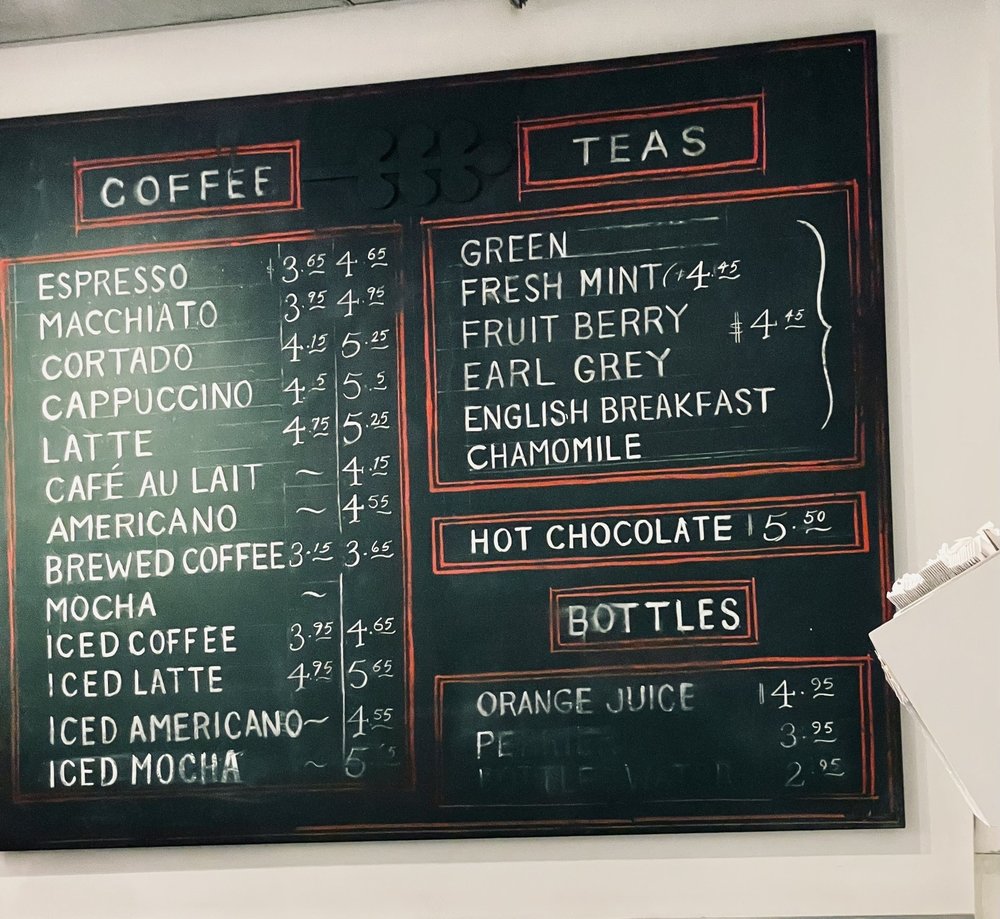 COFFEE
ESPRESSO $3.65 4.65
MACCHIATO 3.95 4.95
CORTADO 4.15 5.25
CAPPUCCINO 4.5 5.5
LATTE 4.75 5.25
CAFÉ AU LAIT ~ 4.15
AMERICANO ~ 4.55
BREWED COFFEE 3.15 3.65
MOCHA ~
ICED COFFEE 3.95 4.65
ICED LATTE 4.95 5.65
ICED AMERICANO ~ 4.55
ICED MOCHA ~
TEAS
GREEN
FRESH MINT ($4.45
FRUIT BERRY $4.45
EARL GREY
ENGLISH BREAKFAST
CHAMOMILE
HOT CHOCOLATE 5.50
BOTTLES
ORANGE JUICE 4.95
3.95
2.95